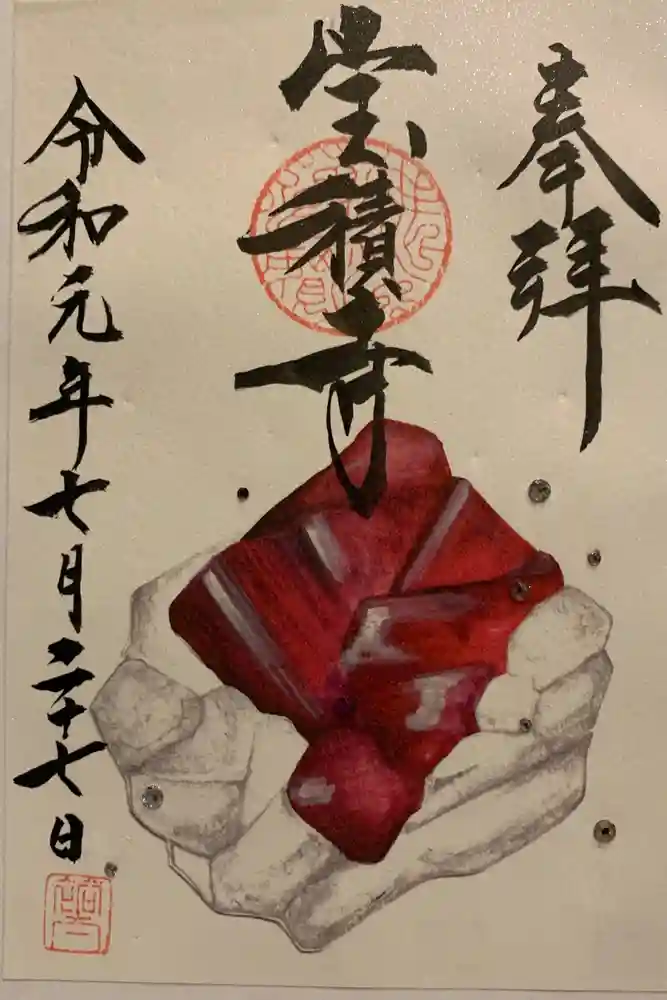 奉拝
宝積寺
令和元年七月二十七日